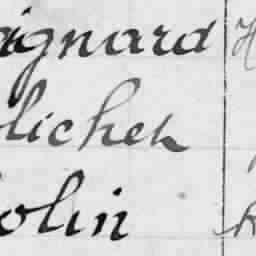 aignard
lichet
olin